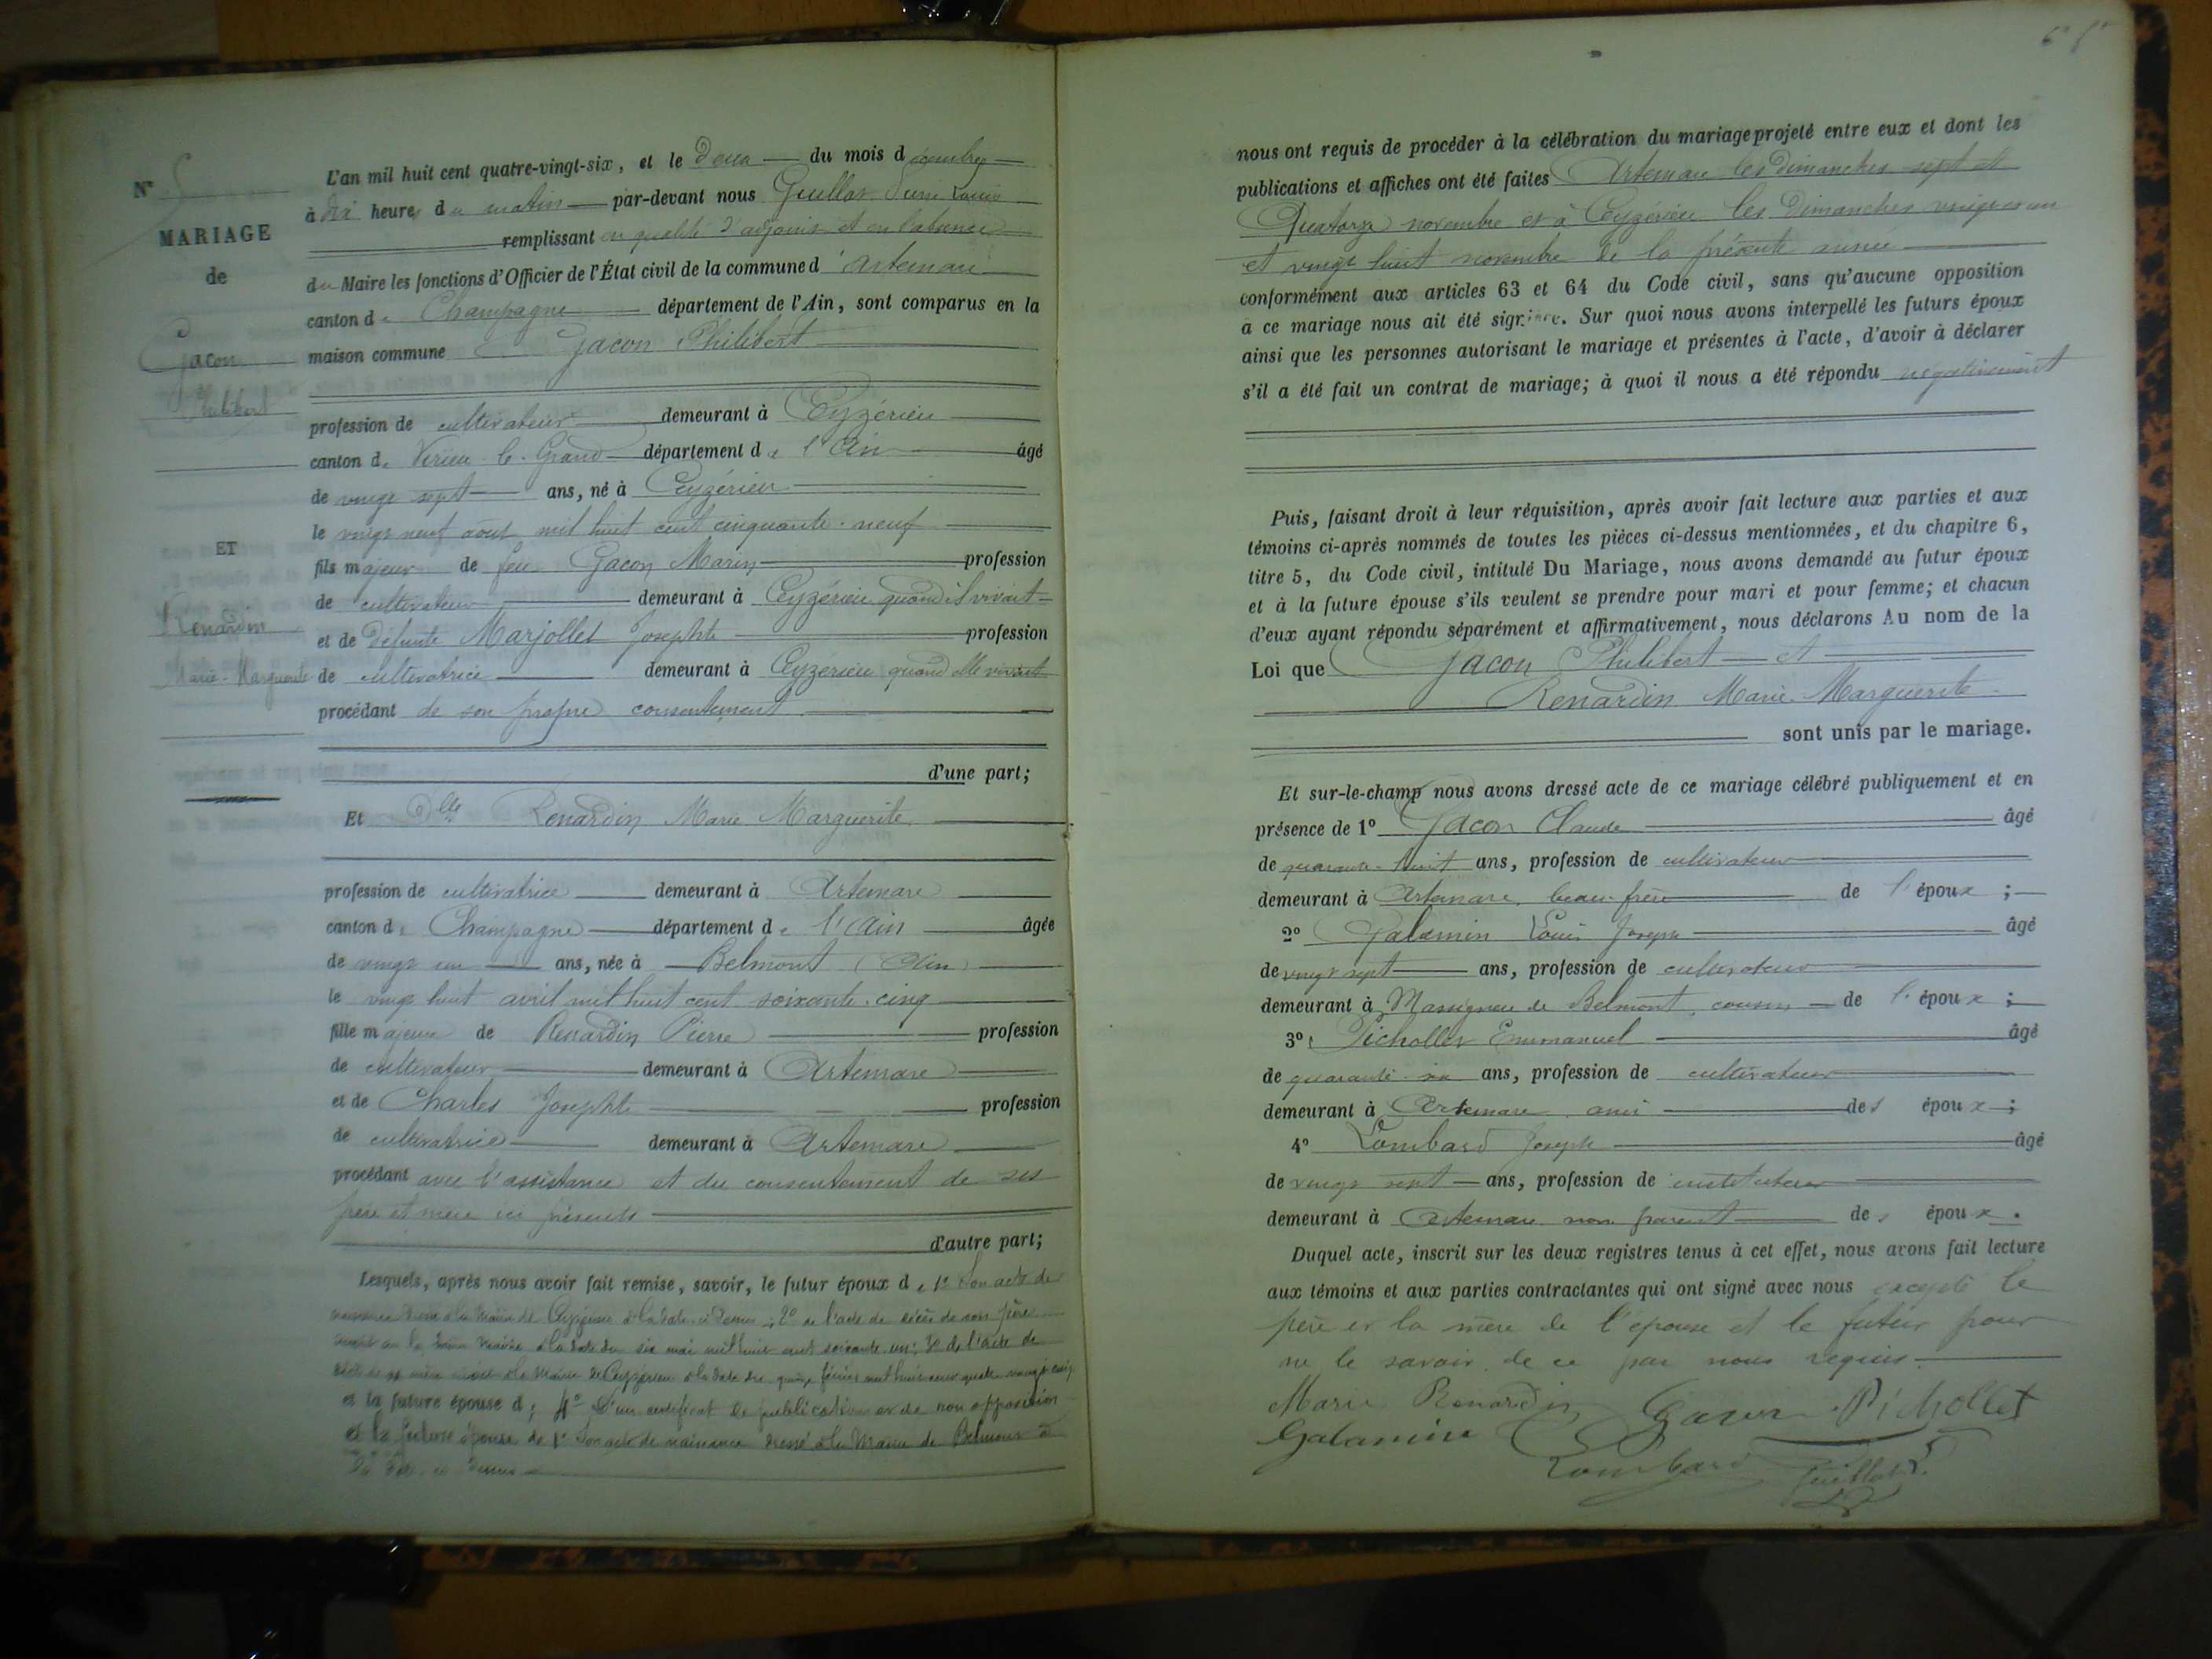 N° 5
MARIAGE
de
Gacon
Philibert
ET
Renardin
Marie-Marguerite
L'an mil huit cent quatre-vingt-six, et le deux du mois décembre
à dix heures du matin par-devant nous Guillot Louis
remplissant en qualité d'adjoint et en l'absence
du Maire les fonctions d'Officier de l'État civil de la commune d'Artemare
canton de Champagne département de l'Ain, sont comparus en la
maison commune Gacon Philibert
profession de cultivateur demeurant à Ceyzérieu
canton de Virieu le Grand département de l'Ain âgé
de vingt sept ans, né à Ceyzérieu
le vingt neuf août mil huit cent cinquante-neuf
fils majeur de feu Gacon Marin profession
de cultivateur demeurant à Ceyzérieu quand il vivait
et de défunte Marjollet Josephte profession
de cultivatrice demeurant à Ceyzérieu quand elle vivait
procédant de son propre consentement
d'une part;
Et Dlle Renardin Marie Marguerite
profession de cultivatrice demeurant à Artemare
canton de Champagne département de l'Ain âgée
de vingt un ans, née à Belmont (Ain)
le vingt huit avril mil huit cent soixante-cinq
fille majeure de Renardin Pierre profession
de cultivateur demeurant à Artemare
et de Charles Josephte profession
de cultivatrice demeurant à Artemare
procédant avec l'assistance et du consentement de ses
père et mère ici présents
d'autre part;
Lesquels, après nous avoir fait remise, savoir, le futur époux de 1° Son acte de
naissance dressé à la Mairie de Ceyzérieu à la date ci-dessus; 2° de l'acte de décès de son père
mairie à la date du six mai mil huit cent soixante-un; 3° de l'acte de
décès de sa mère à la Mairie de Ceyzérieu à la date du quinze février mil huit cent quatre vingt-cinq
et la future épouse d; 4° D'un certificat de publication et de non opposition
et la future épouse de 1° Son acte de naissance dressé à la Mairie de Belmont à
la date ci-dessus
nous ont requis de procéder à la célébration du mariage projeté entre eux et dont les
publications et affiches ont été faites Artemare les dimanches sept et
Quatorze novembre et à Ceyzérieu les dimanches vingt et un
et vingt huit novembre de la présente année
conformément aux articles 63 et 64 du Code civil, sans qu'aucune opposition
à ce mariage nous ait été signifiée. Sur quoi nous avons interpellé les futurs époux
ainsi que les personnes autorisant le mariage et présentes à l'acte, d'avoir à déclarer
s'il a été fait un contrat de mariage; à quoi il nous a été répondu négativement
Puis, faisant droit à leur réquisition, après avoir fait lecture aux parties et aux
témoins ci-après nommés de toutes les pièces ci-dessus mentionnées, et du chapitre 6,
titre 5, du Code civil, intitulé Du Mariage, nous avons demandé au futur époux
et à la future épouse s'ils veulent se prendre pour mari et pour femme; et chacun
d'eux ayant répondu séparément et affirmativement, nous déclarons Au nom de la
Loi que Gacon Philibert et
Renardin Marie Marguerite
sont unis par le mariage.
Et sur-le-champ nous avons dressé acte de ce mariage célébré publiquement et en
présence de 1° Gacon Claude âgé
de quarante-huit ans, profession de cultivateur
demeurant à Artemare, beau-frère de l'époux;
2° Galamin Louis Joseph âgé
de vingt sept ans, profession de cultivateur
demeurant à Massignieu de Belmont, cousin de l'époux;
3° Pichollet Emmanuel âgé
de quarante-six ans, profession de cultivateur
demeurant à Artemare ami des époux;
4° Lombard Joseph âgé
de vingt sept ans, profession de instituteur
demeurant à Artemare non parent des époux.
Duquel acte, inscrit sur les deux registres tenus à cet effet, nous avons fait lecture
aux témoins et aux parties contractantes qui ont signé avec nous excepté le
père et la mère de l'épouse et le futur pour
ne le savoir de ce par nous requis.
Marie Renardin Gacon Pichollet
Galamin
Lombard Guillot